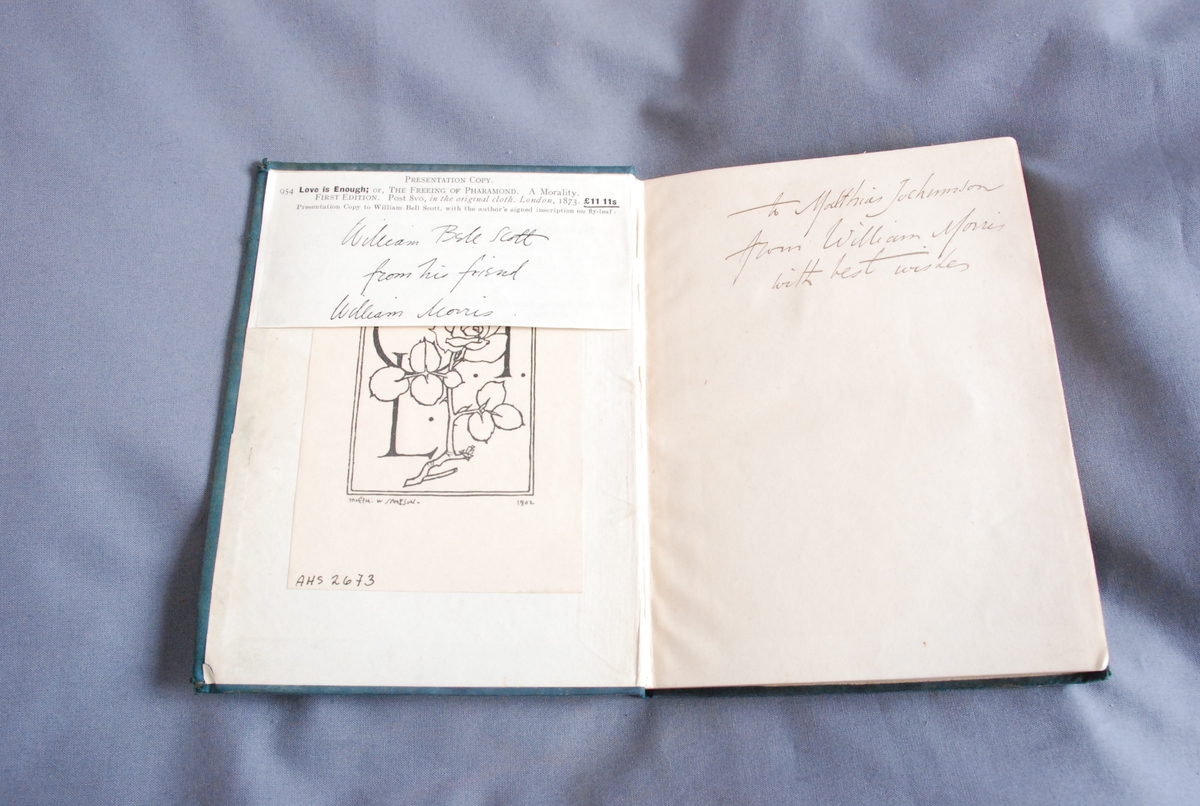 PRESENTATION COPY.
954 Love is Enough; or, THE FREEING OF PHARAMOND. A Morality.
FIRST EDITION. Post 8vo, in the original cloth. London, 1873. £11 11s
Presentation Copy to William Bell Scott, with the author's signed inscription on fly-leaf:
William Bell Scott
from his friend
William Morris.
L.
1902
AHS 2673
to Matthias Jochumsson
from William Morris
with best wishes